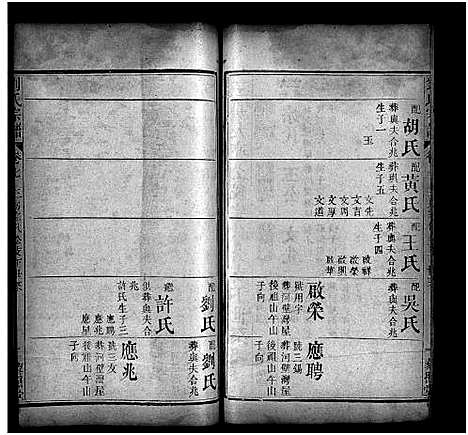 配
胡氏
葬與夫合兆
生子一
玉
配
黃氏
葬與夫合兆
生子五
文先
文言
文周
文學
文選
配
王氏
葬與夫合兆
生子四
啟祥
啟榮
啟興
啟華
配
吳氏
葬與夫合兆
應聘
號三錫
葬河壁灣屋
後祖山午山
子向
啟榮
號用字
葬河壁灣屋
後祖山午山
子向
配
劉氏
劉氏
葬與夫合
兆
繼
許氏
俱葬與夫合
兆
許氏生子三
應聘
應兆
應星
應兆
號三友
葬河壁灣屋
後祖山午山
子向
劉氏宗譜